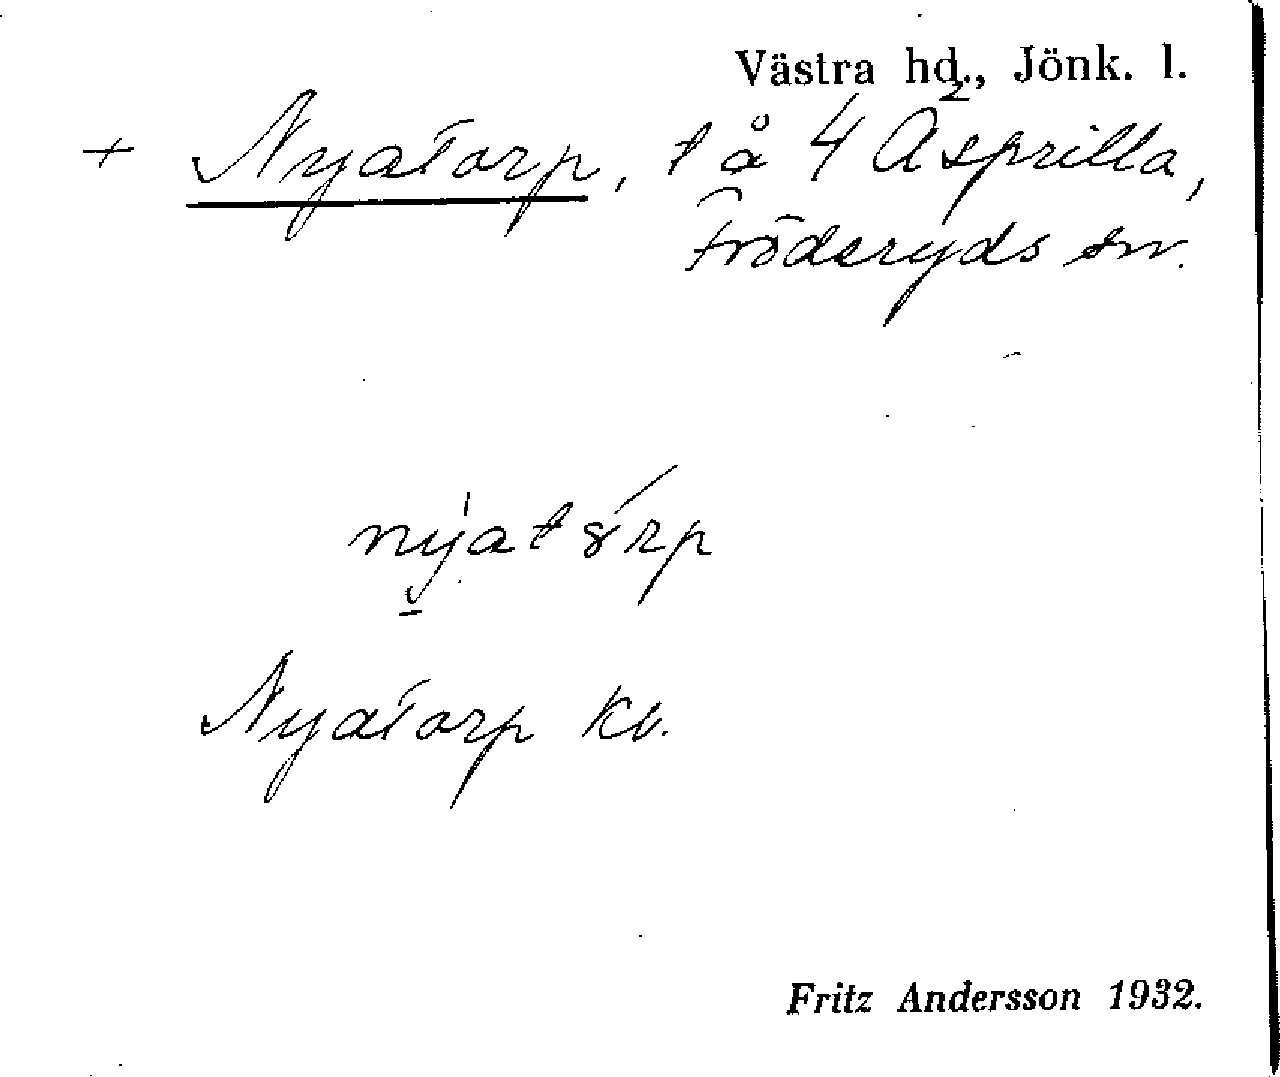 Västra hd., Jönk. l.
+ Nyatorp, t å 4 Äsprilla,
Fröderyds sn.
Nyatorp kb.
Fritz Andersson 1932.